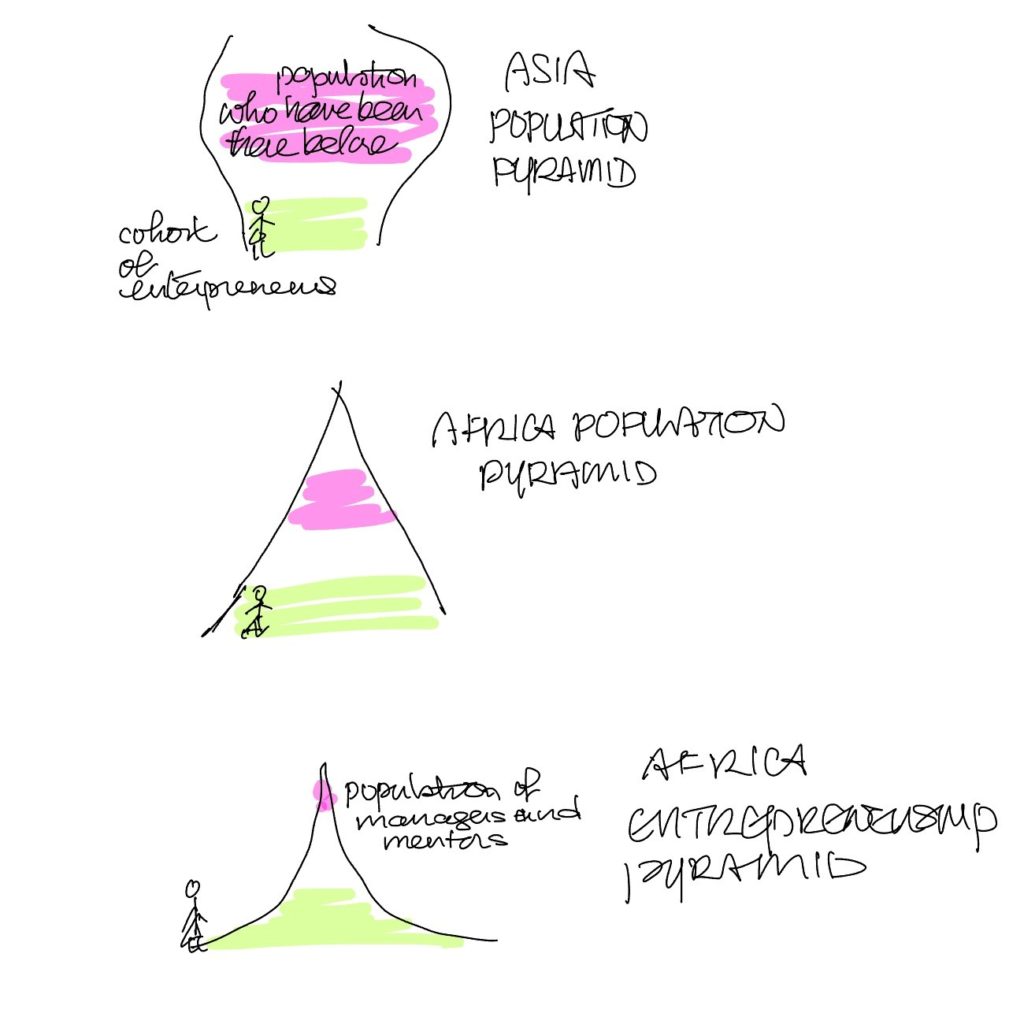 population
who have been
there before
ASIA
POPULATION
PYRAMID
cohort
of
enterpreneurs
AFRICA POPULATION
PYRAMID
population of
managers and
mentors
AFRICA
ENTREPRENEURSHIP
PYRAMID